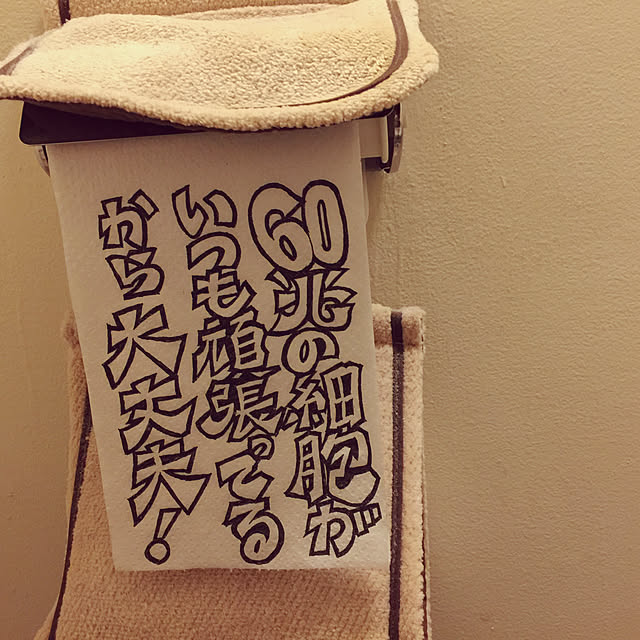 60兆の細胞が
いつも頑張ってる
から大丈夫!